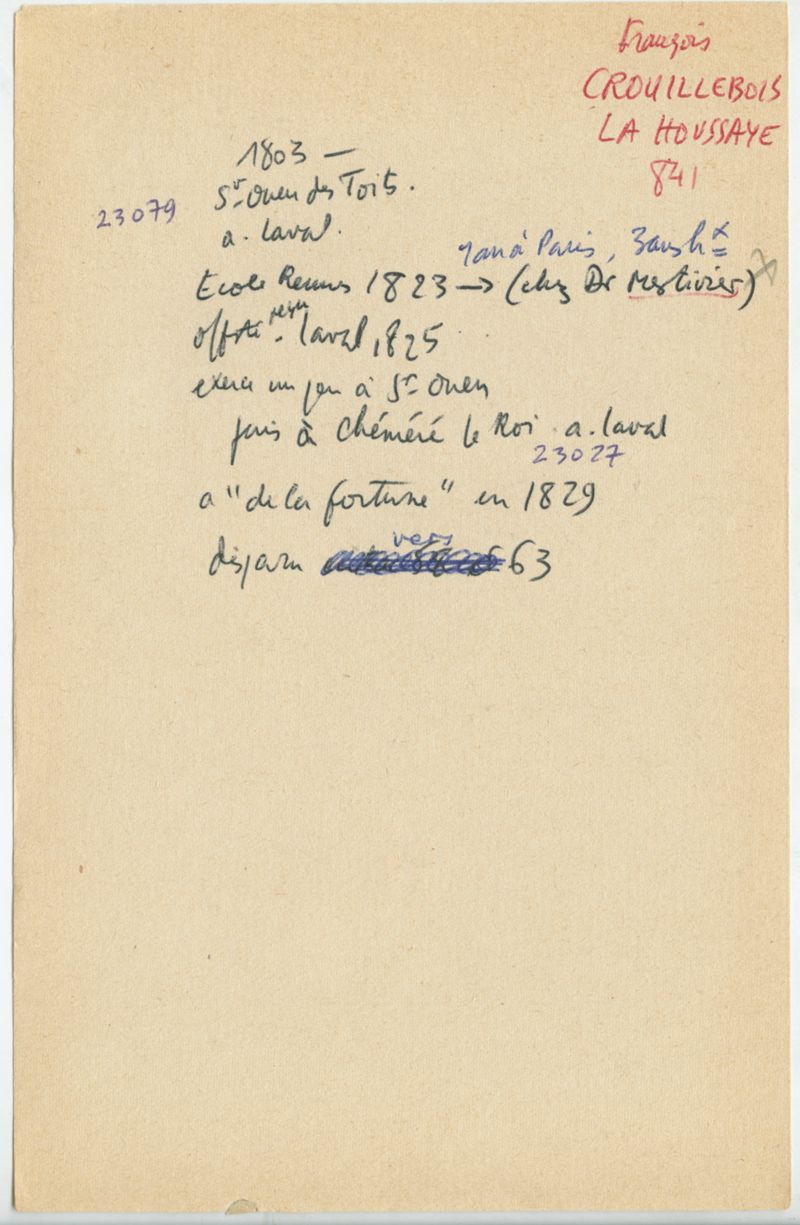 François
CROUILLEBOIS
LA HOUSSAYE
841
1803 —
St Ouen des Toits.
23079
a. Laval.
1 an à Paris, 3 ans hx
Ecole Rennes 1823 → (chez Dr Mestivier)
reçu
offsté - Laval, 1825
exerce un peu à St Ouen
puis à Chéméré le Roi a. Laval
23027
a "de la fortune" en 1829
vers
disparu 63